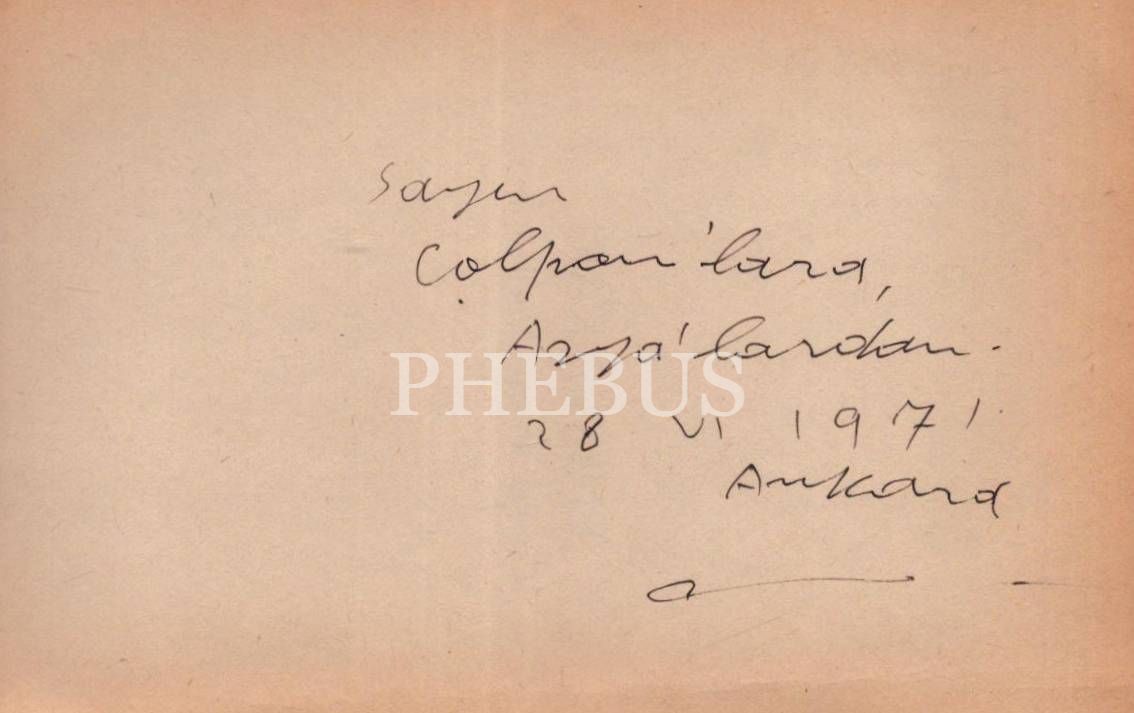 Sayın
Çolpan'lara,
Asya'lardan.
PHEBUS
28 VI 1971
Ankara